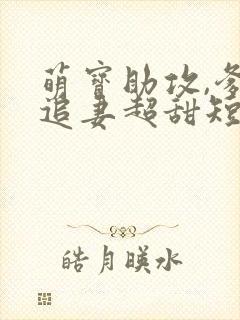 萌宝助攻,爹
追妻超甜短
皓月暎水